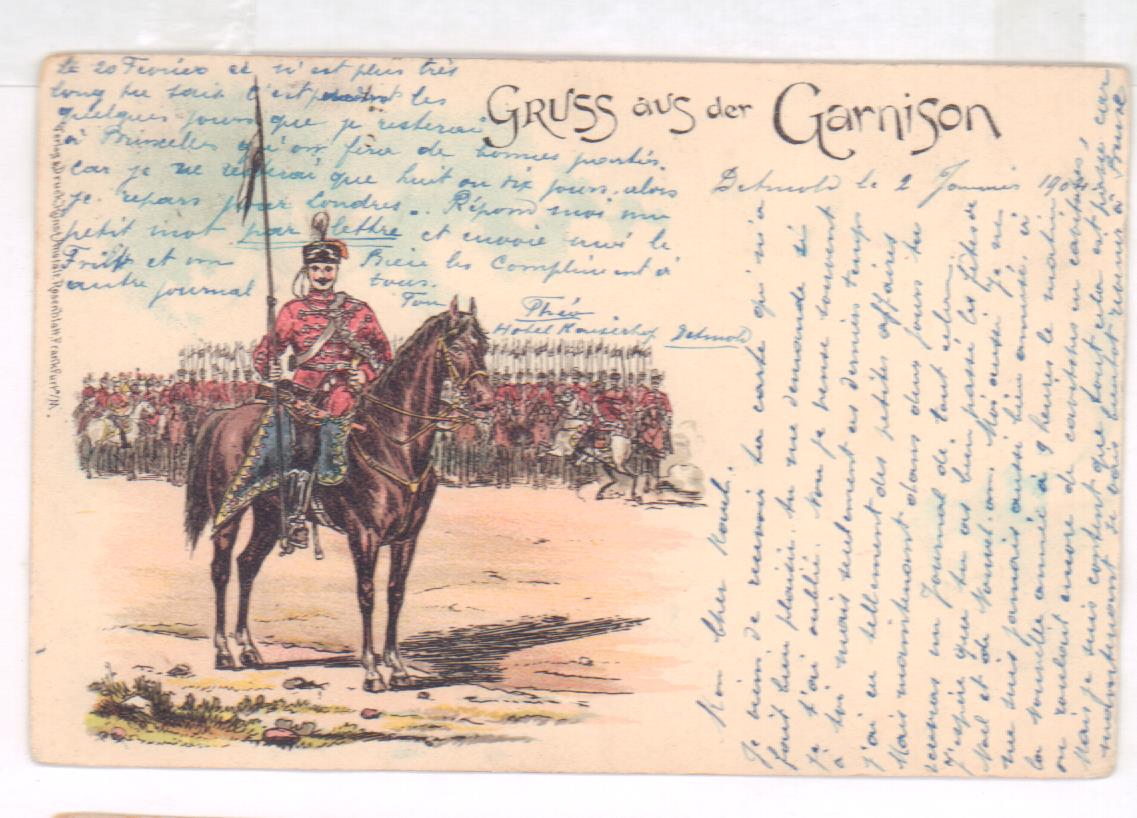 GRUSS aus der Garnison
Detmold le 2 Janvier 1904
Mon Cher Raoul.
Je viens de recevoir ta carte qui m'a
fait bien plaisir. tu me demande si
je t'ai oublié. Non je pense souvent
à toi mais seulement ces derniers temps
j'ai eu tellement des petites affaires
Mais maintenant dans deux jours tu
recevras un Journal de tout cela.
J'espère que tu as bien passé les fêtes de
Noël et de Nouvel-an. Moi aussi je
ne suis jamais aussi bien amusé à
la nouvelle année à 9 heures le matin
on roulait encore dans les en
Mais je suis content que tout cela est passé car
maintenant je vais bientôt revenir à Brux
le 20 Fevrier et n'est plus très
long tu sais c'est pendant les
quelques jours que je resterai
à Bruxelles qu'on fera de bonnes parties.
car je ne resterai que huit ou dix jours. alors
je repars pour Londres. Répond moi un
petit mot par lettre et envoie moi le
Frikk et un
autre journal
Bien les Compliment à
tous.
Ton
Théo
Hotel Kaiserhof Detmold
Verlag & Druck Kunst Anstalt Rosenblatt Frankfurt a/M.